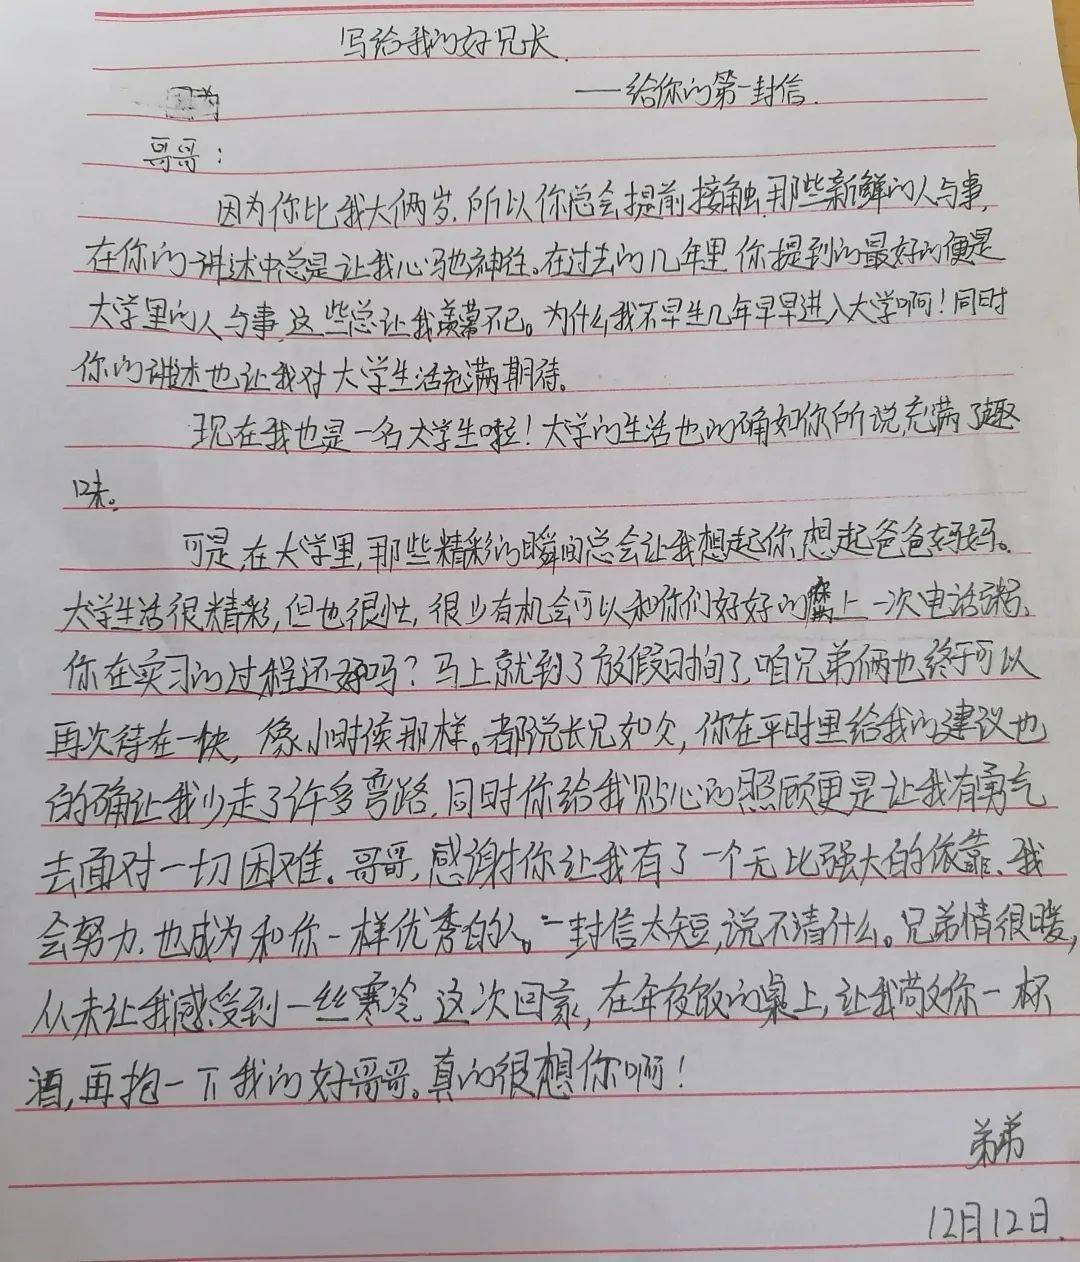 写给我的好兄长.
——给你的第一封信.
因为
哥哥：
因为你比我大俩岁.所以你总会提前接触那些新鲜的人与事,
在你的讲述中总是让我心驰神往。在过去的几年里你提到的最好的便是
大学里的人与事,这些总让我羡慕不已。为什么我不早生几年早早进入大学啊！同时
你的讲述也让我对大学生活充满期待。
现在我也是一名大学生啦！大学的生活也的确如你所说,充满了趣
味。
可是,在大学里,那些精彩的瞬间总会让我想起你、想起爸爸妈妈。
大学生活很精彩,但也很忙,很少有机会可以和你们好好的上一次电话粥、
你在实习的过程还好吗？马上就到了放假时间了,咱兄弟俩也终于可以
再次待在一快,像小时侯那样。都说长兄如父,你在平时里给我的建议也
的确让我少走了许多弯路.同时你给我贴心的照顾更是让我有勇气
去面对一切困难。哥哥,感谢你让我有了一个无比强大的依靠.我
会努力.也成为和你一样优秀的人。一封信太短,说不清什么。兄弟情很暖,
从未让我感受到一丝寒冷.这次回家,在年夜饭的桌上,让我敬你一杯
酒,再抱一下我的好哥哥。真的很想你啊！
弟弟
12月12日.